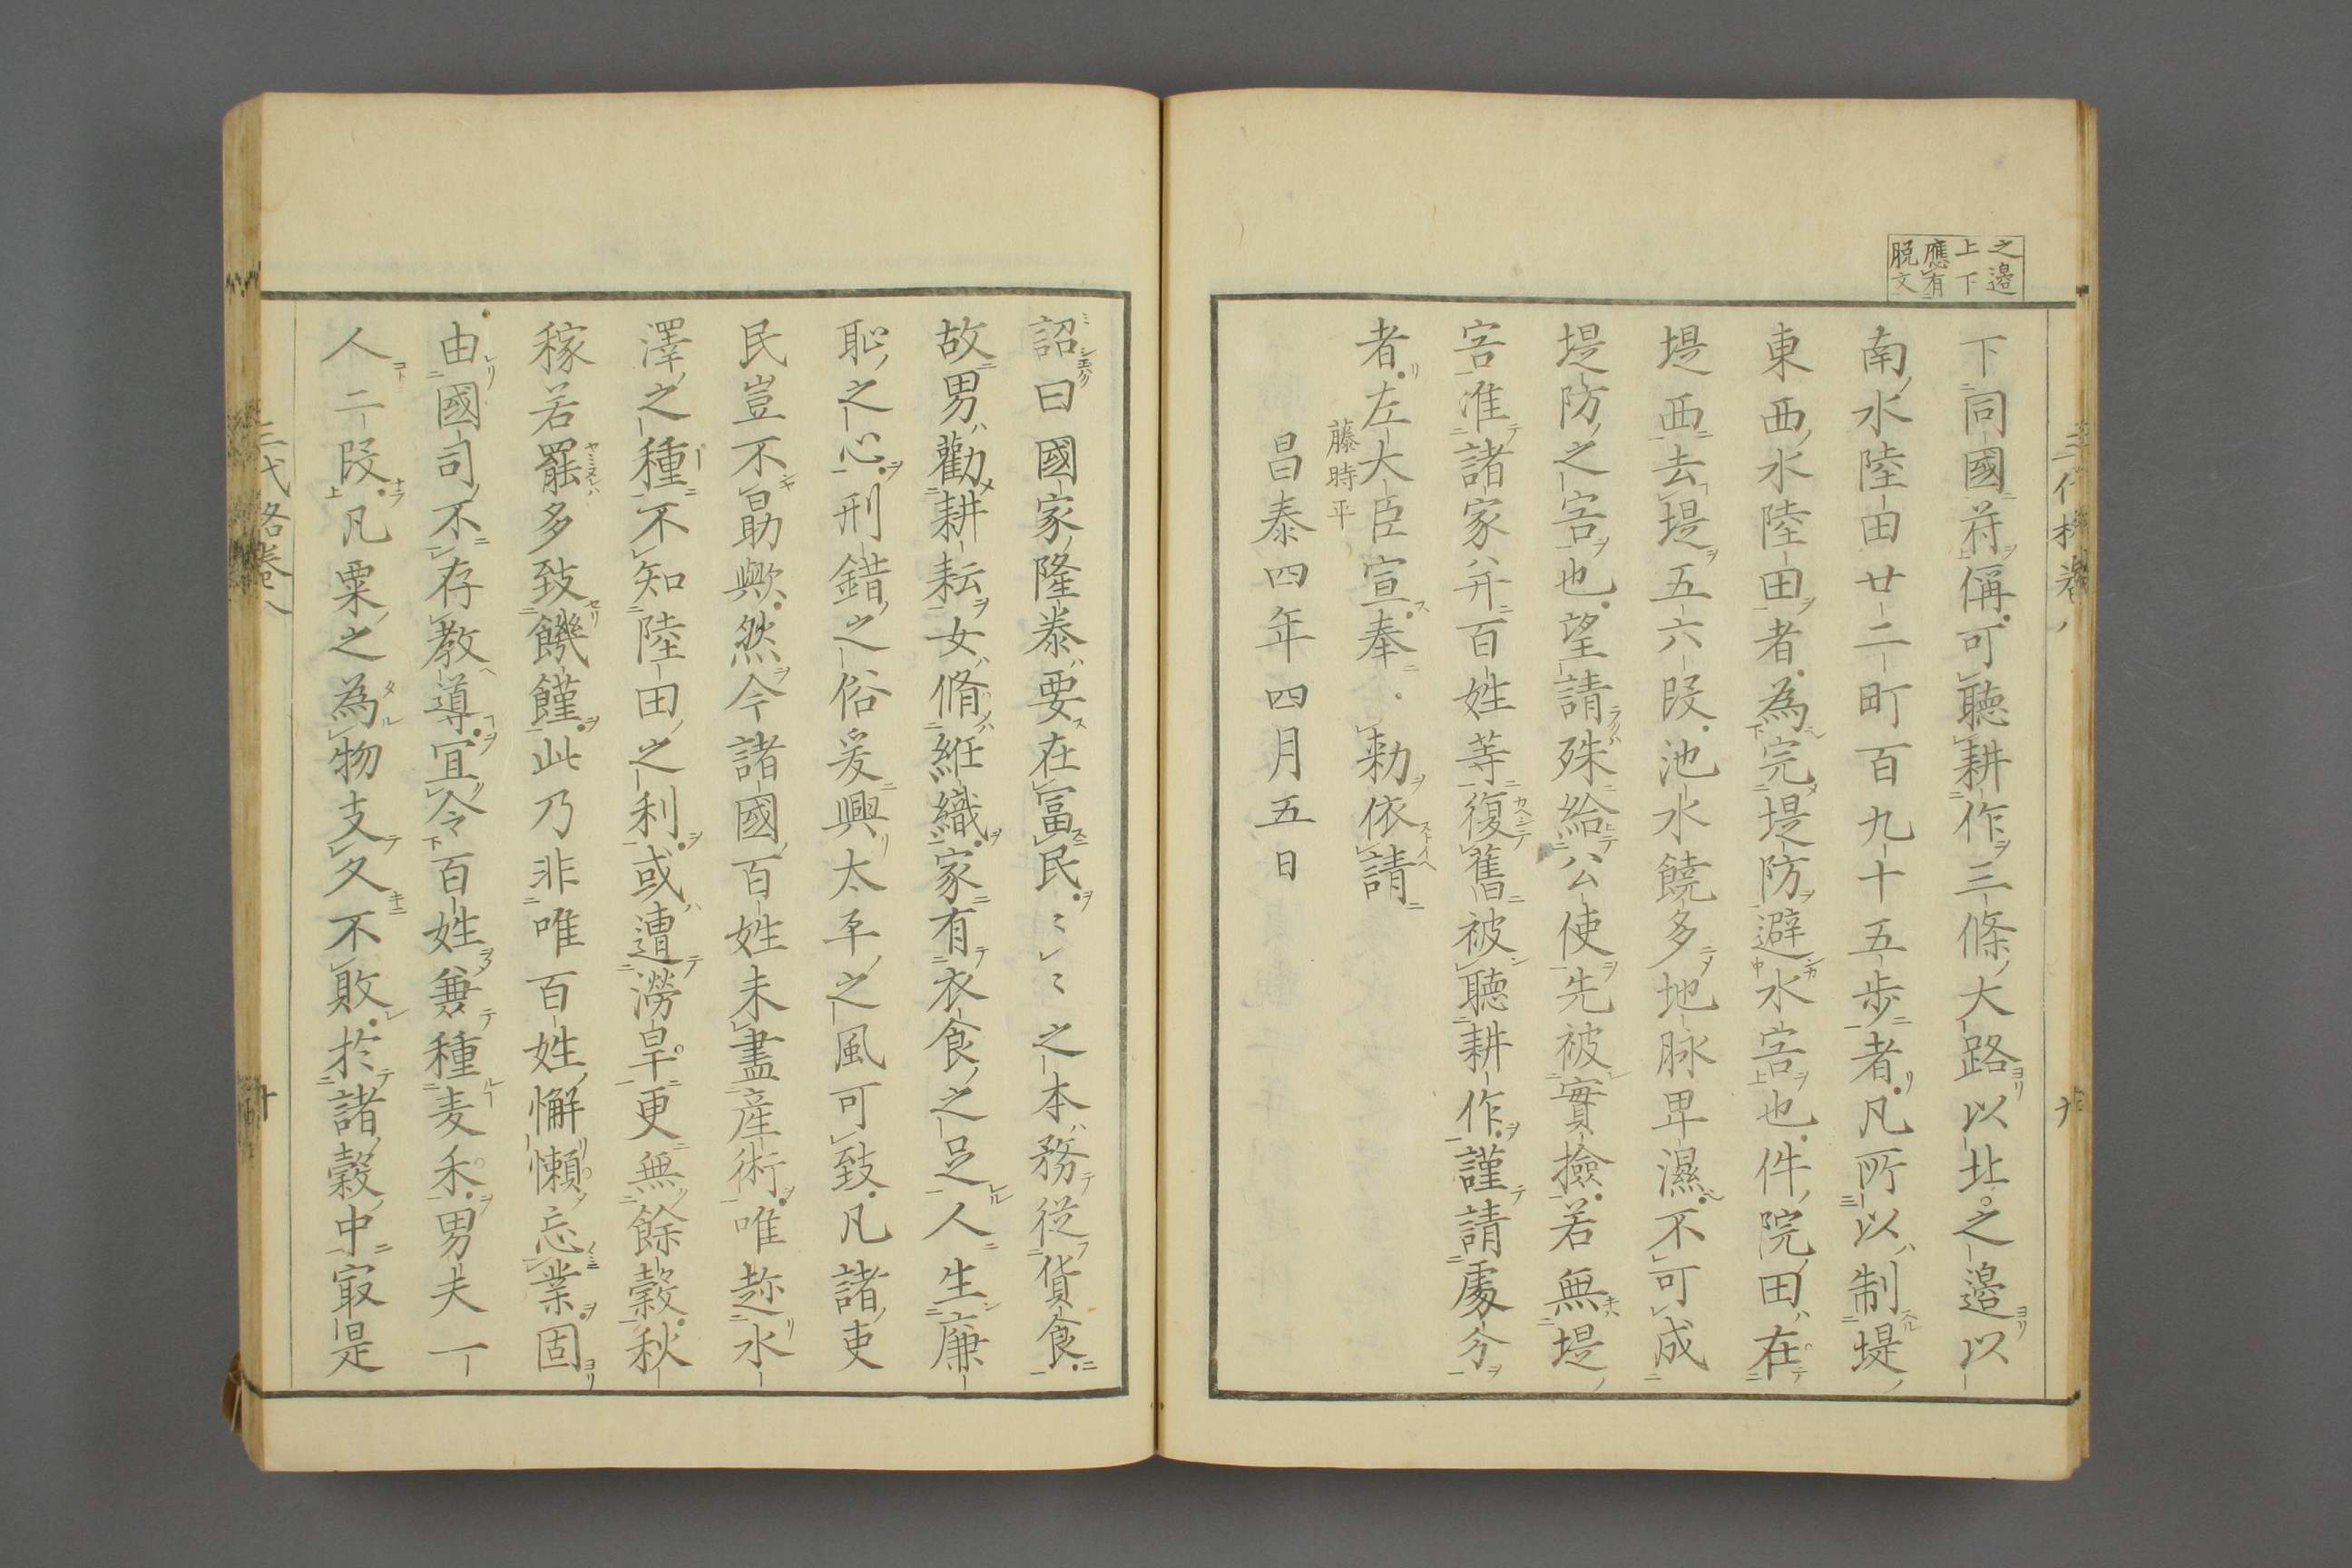 之邉
上下
應有
脱文
下同國符偁可聽耕作三條大路以北之邉以
南水陸田廿二町百九十五歩者凡所以制堤
東西水陸田者為完堤防避水害也件院田在
堤西去堤五六段池水饒多地脉卑濕不可成
堤防之害也望請殊給公使先被實撿若無堤
害准諸家幷百姓等復舊被聽耕作謹請處分
者左大臣宣奉勅依請
藤時平
昌泰四年四月五日
詔曰國家隆泰要在富民〻〻之本務從貨食
故男勸耕耘女脩絍織家有衣食之足人生廉
恥之心刑錯之俗爰興太平之風可致凡諸吏
民豈不勗歟然今諸國百姓未盡産術唯趂水
澤之種不知陸田之利或遭澇旱更無餘穀秋
稼若罷多致饑饉此乃非唯百姓懈懶忘業固
由國司不存教導宜令百姓兼種麦禾男夫一
人二段凡粟之為物支久不敗於諸穀中㝡是
三代格卷八